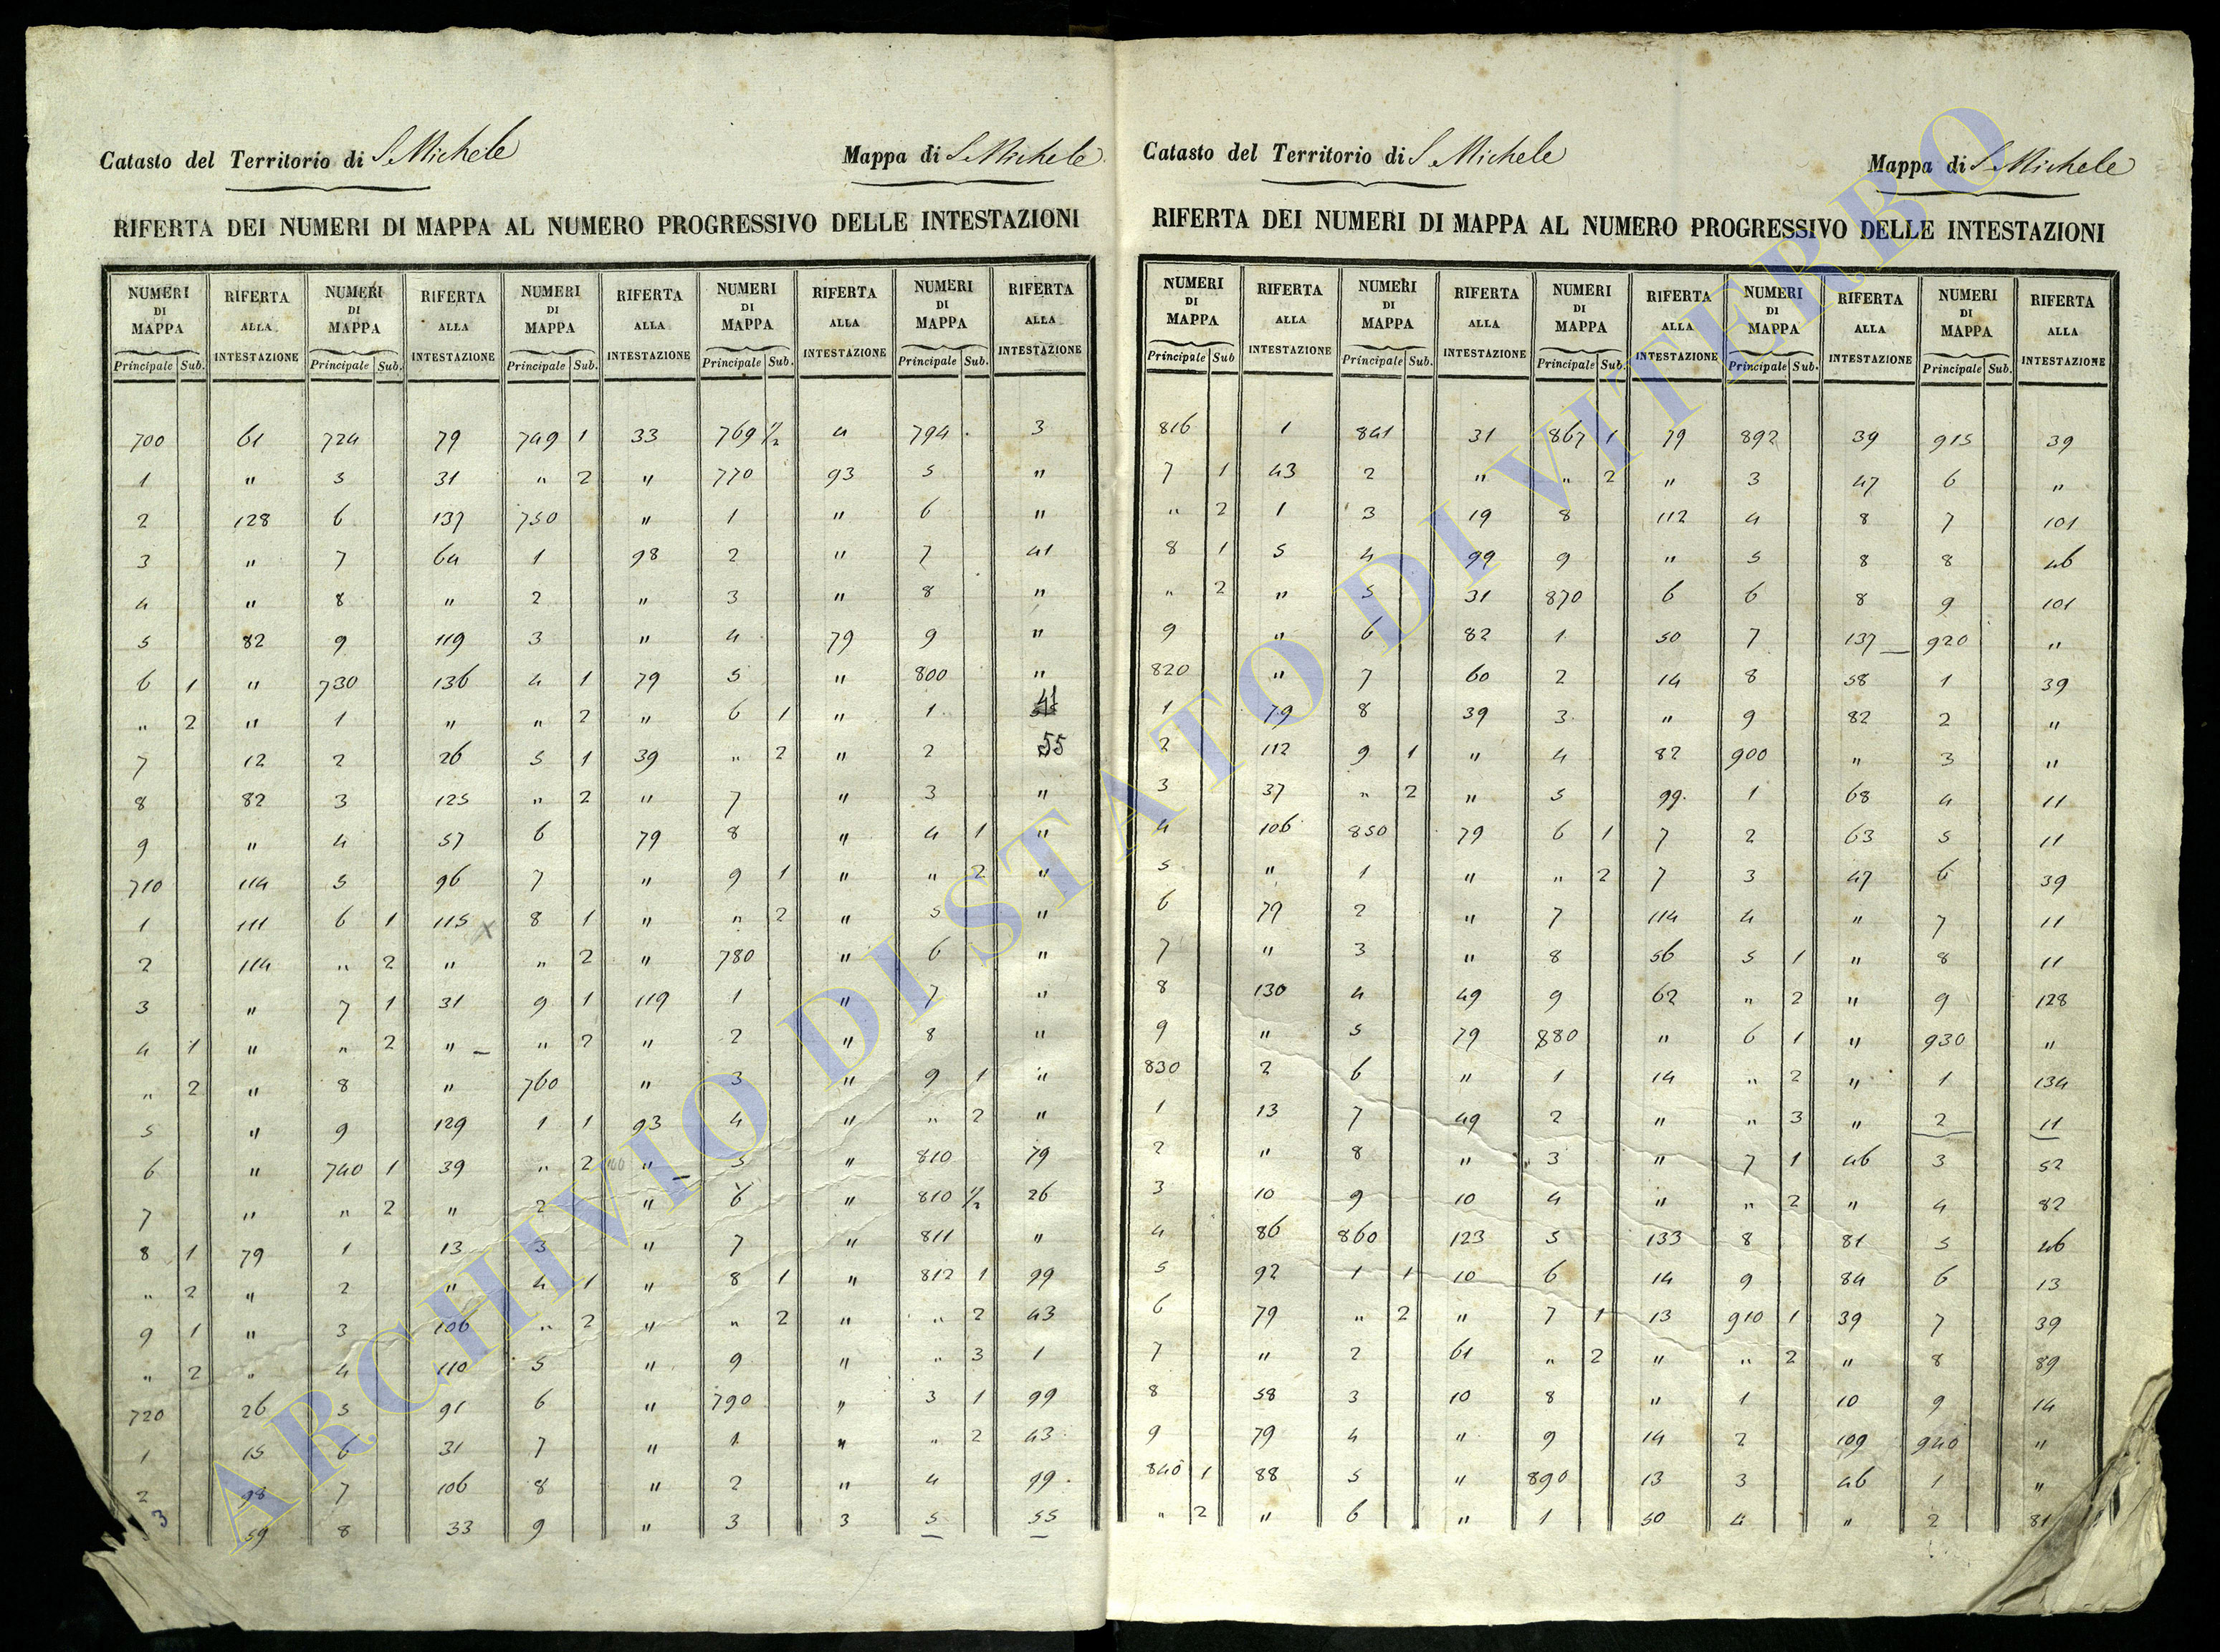 Catasto del Territorio di S. Michele Mappa di S. Michele
RIFERTA DEI NUMERI DI MAPPA AL NUMERO PROGRESSIVO DELLE INTESTAZIONI
NUMERI DI MAPPA RIFERTA ALLA INTESTAZIONE NUMERI DI MAPPA RIFERTA ALLA INTESTAZIONE NUMERI DI MAPPA RIFERTA ALLA INTESTAZIONE NUMERI DI MAPPA RIFERTA ALLA INTESTAZIONE NUMERI DI MAPPA RIFERTA ALLA INTESTAZIONE
Principale Sub. Principale Sub. Principale Sub. Principale Sub. Principale Sub.
700 61 724 79 749 1 33 769 1/2 4 794 3
1 " 5 31 " 2 " 770 93 5 "
2 128 6 137 750 " 1 " 6 "
3 " 7 64 1 98 2 " 7 41
4 " 8 " 2 " 3 " 8 "
5 82 9 119 3 " 4 79 9 "
6 1 " 730 136 4 1 79 5 " 800 "
" 2 " 1 " " 2 " 6 1 " 1 41
7 12 2 26 5 1 39 " 2 " 2 55
8 82 3 125 " 2 " 7 " 3 "
9 " 4 57 6 79 8 " 4 1 "
710 114 5 96 7 " 9 1 " " 2 "
1 111 6 1 115 8 1 " " 2 " 5 "
2 114 " 2 " " 2 " 780 " 6 "
3 " 7 1 31 9 1 119 1 " 7 "
4 1 " " 2 " " 2 " 2 " 8 "
" 2 " 8 " 760 " 3 " 9 1 "
5 " 9 129 1 1 93 4 " " 2 "
6 " 740 1 39 " 2 " 5 " 810 79
7 " " 2 " 2 " 6 " 810 1/2 26
8 1 79 1 13 3 " 7 " 811 "
" 2 " 2 " 4 1 " 8 1 " 812 1 99
9 1 " 3 106 " 2 " " 2 " " 2 43
" 2 " 4 110 5 " 9 " " 3 1
720 26 5 91 6 " 790 " 3 1 99
1 15 6 31 7 " 1 " " 2 43
2 98 7 106 8 " 2 " 4 99
3 59 8 33 9 " 3 3 5 55
Catasto del Territorio di S. Michele Mappa di S. Michele
RIFERTA DEI NUMERI DI MAPPA AL NUMERO PROGRESSIVO DELLE INTESTAZIONI
NUMERI DI MAPPA RIFERTA ALLA INTESTAZIONE NUMERI DI MAPPA RIFERTA ALLA INTESTAZIONE NUMERI DI MAPPA RIFERTA ALLA INTESTAZIONE NUMERI DI MAPPA RIFERTA ALLA INTESTAZIONE NUMERI DI MAPPA RIFERTA ALLA INTESTAZIONE
Principale Sub Principale Sub. Principale Sub. Principale Sub. Principale Sub.
816 1 841 31 867 1 79 892 39 915 39
7 1 43 2 " " 2 " 3 47 6 "
" 2 1 3 19 8 112 4 8 7 101
8 1 5 4 99 9 " 5 8 8 46
" 2 " 5 31 870 6 6 8 9 101
9 " 6 82 1 50 7 137 920 "
820 " 7 60 2 14 8 58 1 39
1 79 8 39 3 " 9 82 2 "
2 112 9 1 " 4 82 900 " 3 "
3 37 " 2 " 5 99 1 68 4 11
4 106 850 79 6 1 7 2 63 5 11
5 " 1 " " 2 7 3 47 6 39
6 79 2 " 7 114 4 " 7 11
7 " 3 " 8 56 5 1 " 8 11
8 130 4 49 9 62 " 2 " 9 128
9 " 5 79 880 " 6 1 " 930 "
830 2 6 " 1 14 " 2 " 1 134
1 13 7 49 2 " " 3 " 2 11
2 " 8 " 3 " 7 1 46 3 52
3 10 9 10 4 " " 2 " 4 82
4 86 860 123 5 133 8 81 5 46
5 92 1 1 10 6 14 9 84 6 13
6 79 " 2 " 7 1 13 910 1 39 7 39
7 " 2 61 " 2 " " 2 " 8 89
8 58 3 10 8 " 1 10 9 14
9 79 4 " 9 14 2 109 940 "
840 1 88 5 " 890 13 3 46 1 "
" 2 " 6 " 1 50 4 " 2 81
ARCHIVIO DI STATO DI VITERBO